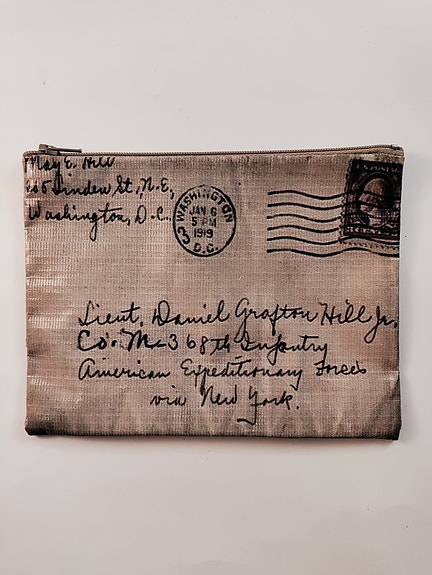 May E. Hill
Linden St., N.E,
Washington, D.C.
WASHINGTON
JAN 6
5 PM
1919
D.C.
Lieut. Daniel Grafton Hill Jr.
Co. M-368th Infantry
American Expeditionary Forces
via New York.